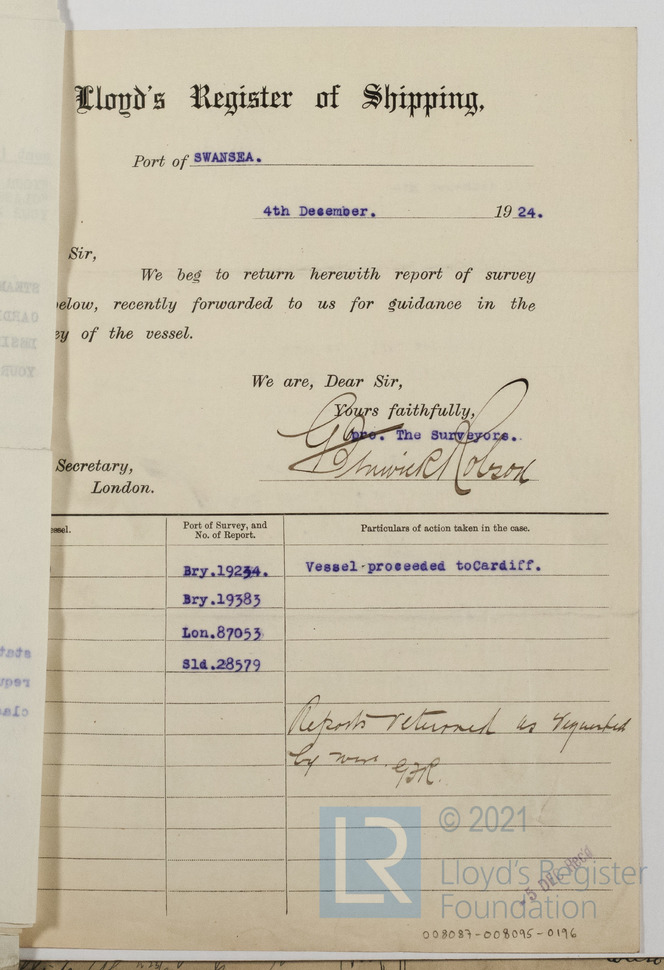 Lloyd's Register of Shipping,
Port of SWANSEA.
4th December. 1924.
Sir,
We beg to return herewith report of survey
below, recently forwarded to us for guidance in the
ey of the vessel.
We are, Dear Sir,
Yours faithfully,
pro. The Surveyors.
G Fenwick Robson
Secretary,
London.
essel.
Port of Survey, and
No. of Report.
Particulars of action taken in the case.
Bry.19234.
Vessel proceeded toCardiff.
Bry.19383
Lon.87053
Sld.28579
Reports returned as requested
by wire. GFR.
LR
© 2021
Lloyd's Register
Foundation
-5 DEC Recd
008087-008095-0196